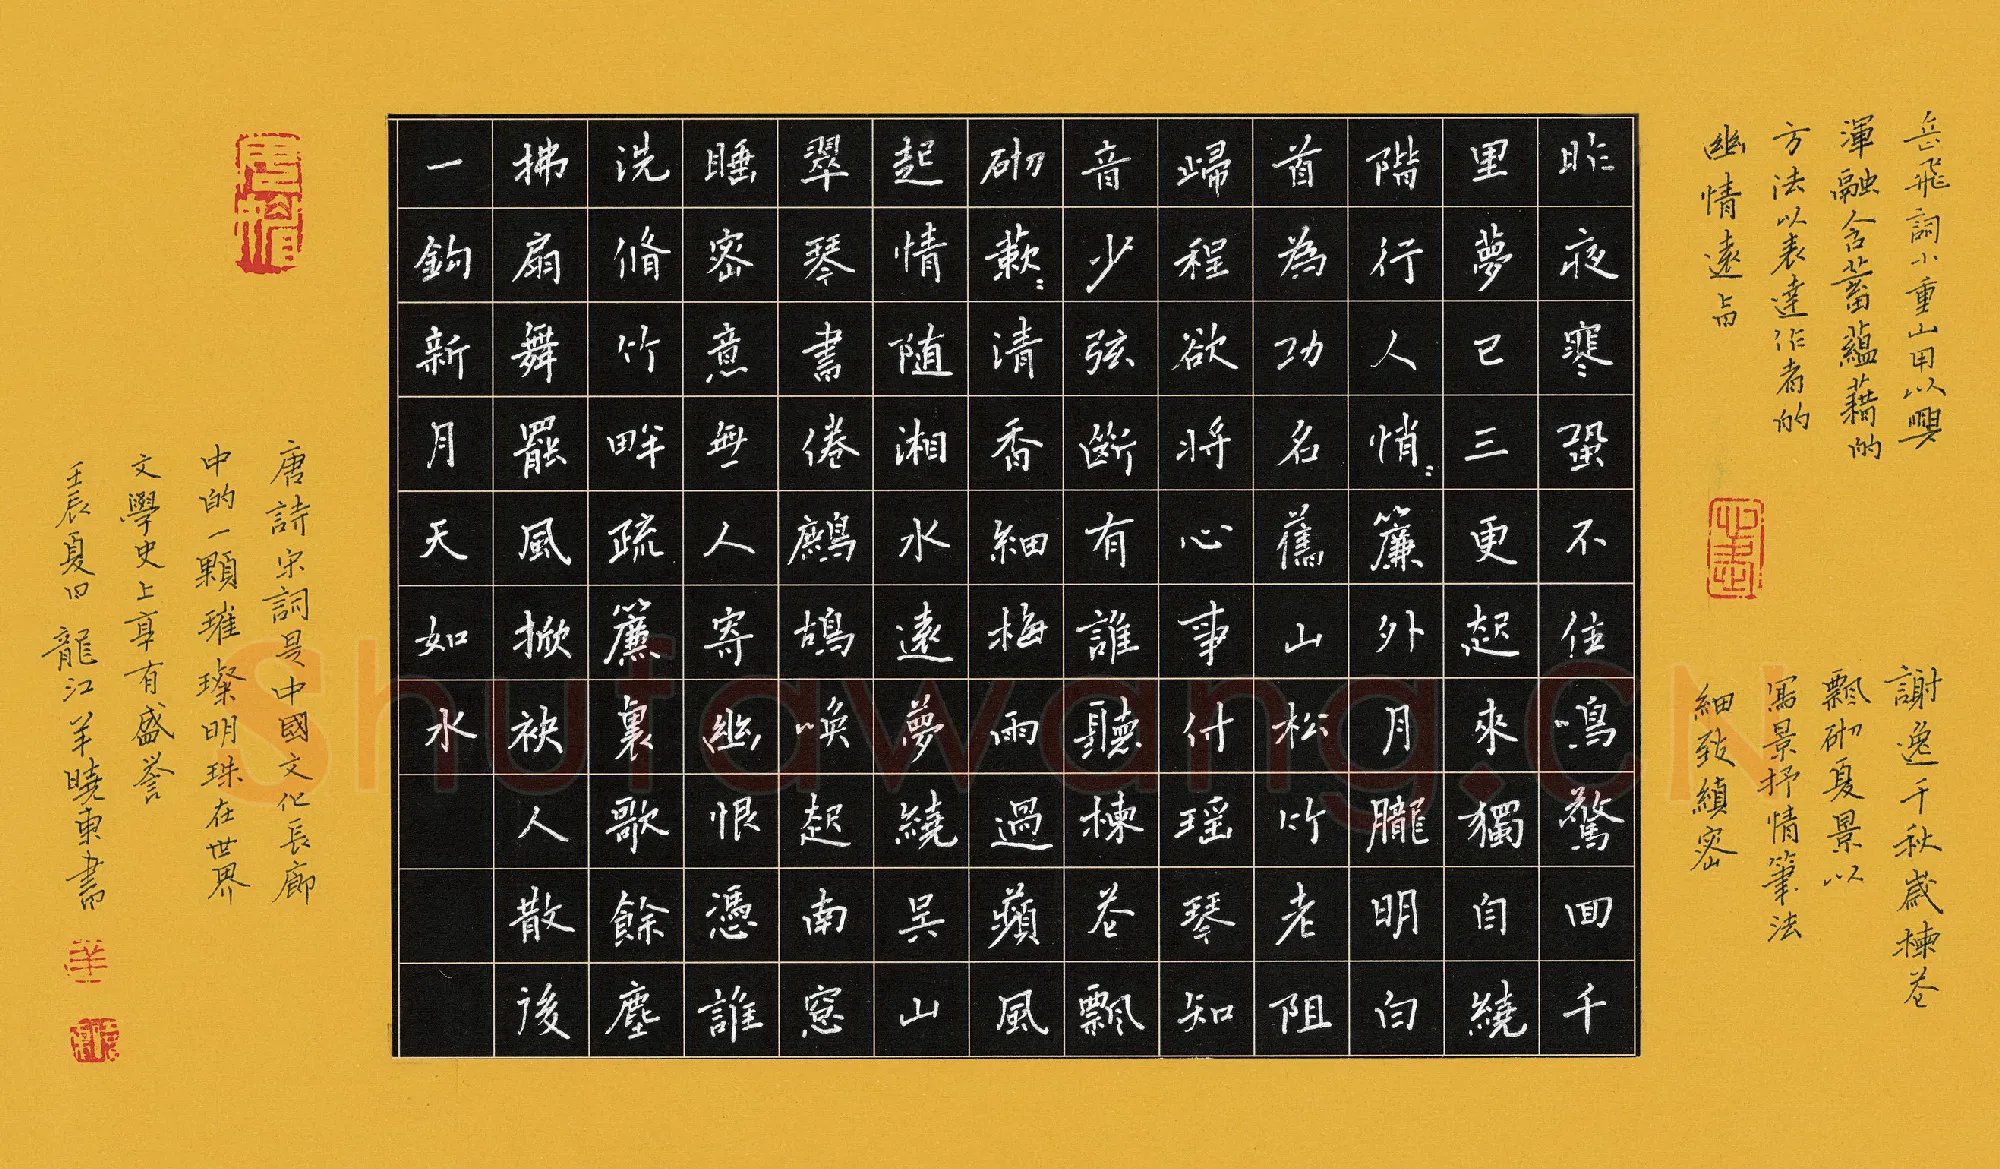 岳飛詞小重山用以興
渾融含蓄蘊藉的
方法以表達作者的
幽情遠旨
謝逸千秋歲楝花
飄砌夏景以
寫景抒情筆法
細致縝密
昨夜寒蛩不住鳴驚回千
里夢已三更起來獨自繞
階行人悄〻簾外月朧明白
首為功名舊山松竹老阻
歸程欲將心事付瑶琴知
音少弦斷有誰聽楝花飄
砌蔌〻清香細梅雨過蘋風
起情随湘水遠夢繞吳山
翠琴書倦鷓鴣喚起南窓
睡密意無人寄幽恨憑誰
洗脩竹畔疏簾裏歌餘塵
拂扇舞罷風掀袂人散後
一鈎新月天如水
唐詩宋詞是中國文化長廊
中的一顆璀璨明珠在世界
文學史上享有盛譽
壬辰夏日龍江羊曉東書
Shufawang.CN